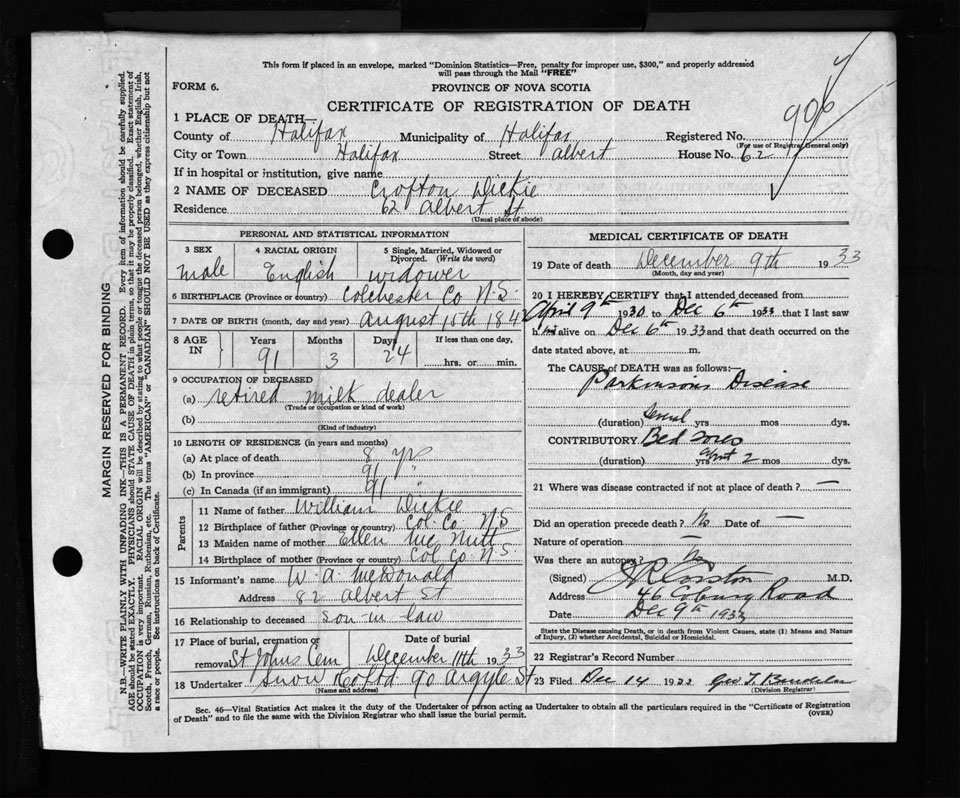 This form if placed in an envelope, marked "Dominion Statistics—Free, penalty for improper use, $300," and properly addressed
will pass through the Mail "FREE"
FORM 6.
PROVINCE OF NOVA SCOTIA
CERTIFICATE OF REGISTRATION OF DEATH
906
1 PLACE OF DEATH—
County of Halifax Municipality of Halifax Registered No.
(For use of Registrar General only)
City or Town Halifax Street Albert House No. 62
If in hospital or institution, give name
2 NAME OF DECEASED Crofton Dickie
Residence 62 Albert St
(Usual place of abode)
PERSONAL AND STATISTICAL INFORMATION
3 SEX 4 RACIAL ORIGIN 5 Single, Married, Widowed or Divorced. (Write the word)
male English widower
6 BIRTHPLACE (Province or country) Colchester Co N.S.
7 DATE OF BIRTH (month, day and year) August 15th 184
8 AGE IN Years Months Days If less than one day,
91 3 24 hrs. or min.
9 OCCUPATION OF DECEASED
(a) retired milk dealer
(Trade or occupation or kind of work)
(b)
(Kind of industry)
10 LENGTH OF RESIDENCE (in years and months)
(a) At place of death 8 yrs
(b) In province 91 "
(c) In Canada (if an immigrant) 91 "
Parents
11 Name of father William Dickie
12 Birthplace of father (Province or country) Col. Co. N.S
13 Maiden name of mother Ellen McNutt
14 Birthplace of mother (Province or country) Col Co N.S.
15 Informant's name W. A. McDonald
Address 82 Albert St
16 Relationship to deceased son in law
17 Place of burial, cremation or removal St Johns Cem Date of burial December 11th 1933
18 Undertaker Snow & Co Ltd 90 Argyle St
(Name and address)
MEDICAL CERTIFICATE OF DEATH
19 Date of death December 9th 1933
(Month, day and year)
20 I HEREBY CERTIFY that I attended deceased from
April 9th 1930 to Dec 6th 1933 that I last saw
him alive on Dec 6th 1933 and that death occurred on the
date stated above, at m.
The CAUSE of DEATH was as follows:—
Parkinsons Disease
(duration) several yrs mos dys.
CONTRIBUTORY Bed sores
(duration) yrs about 2 mos dys.
21 Where was disease contracted if not at place of death? —
Did an operation precede death? No Date of —
Nature of operation —
Was there an autopsy? No
(Signed) M.D.
Address 46 Coburg Road
Date Dec 9th 1933
State the Disease causing Death, or in death from Violent Causes, state (1) Means and Nature
of Injury; (2) Whether Accidental, Suicidal or Homicidal.
22 Registrar's Record Number
23 Filed Dec 14 1933 Geo T.
(Division Registrar)
Sec. 46—Vital Statistics Act makes it the duty of the Undertaker or person acting as Undertaker to obtain all the particulars required in the "Certificate of Registration
of Death" and to file the same with the Division Registrar who shall issue the burial permit.
(OVER)
MARGIN RESERVED FOR BINDING
N.B.—WRITE PLAINLY WITH UNFADING INK—THIS IS A PERMANENT RECORD. Every item of information should be carefully supplied.
AGE should be stated EXACTLY. PHYSICIANS should STATE CAUSE OF DEATH in plain terms, so that it may be properly classified. Exact statement of
OCCUPATION is very important. RACIAL ORIGIN will be described by stating to what people or tongue the deceased person belonged, whether English, Irish,
Scotch, French, German, Russian, Ruthenian, etc. The terms "AMERICAN" or "CANADIAN" SHOULD NOT BE USED as they express citizenship but not
a race or people. See instructions on back of Certificate.